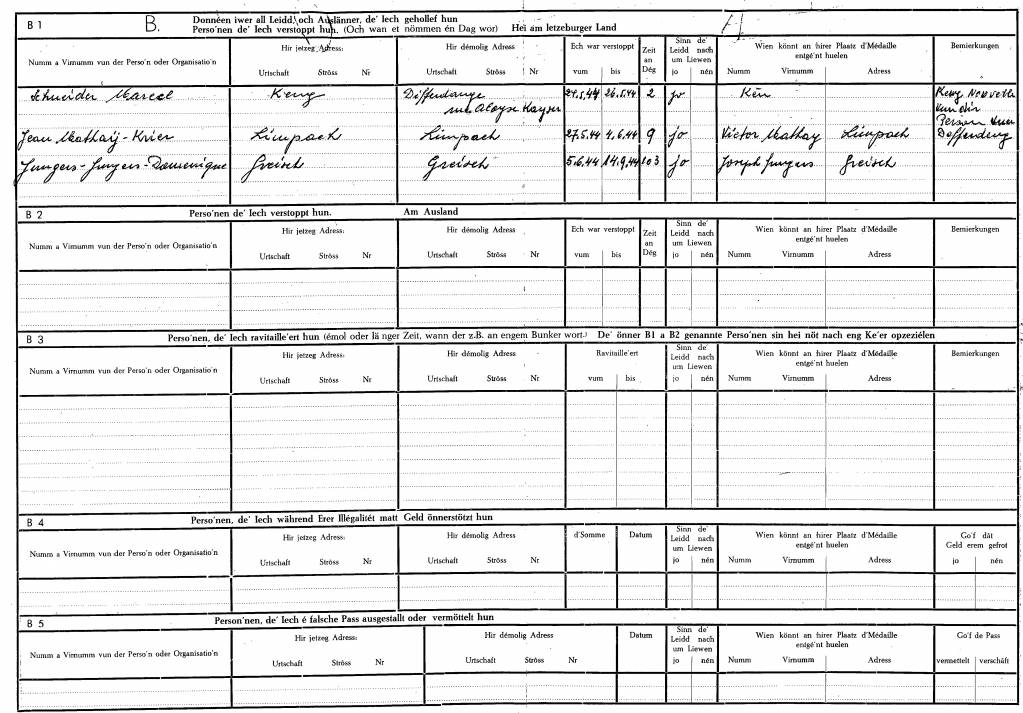 B 1 B. Donnéen iwer all Leidd, och Auslänner, de' Iech gehollef hun
Perso'nen de' Iech verstoppt hun. (Och wan et nömmen én Dag wor) Hei am letzeburger Land
Numm a Virnumm vun der Perso'n oder Organisatio'n
Hir jetzeg Adress:
Urtschaft Ströss Nr
Hir démolig Adress
Urtschaft Ströss Nr
Ech war verstoppt
vum bis
Zeit
an
Dég
Sinn de'
Leidd nach
um Liewen
jo nén
Wien könnt an hirer Plaatz d'Médaille
entgé'nt huelen
Numm Virnumm Adress
Bemierkungen
Schneider Marcel Keng Differdange 24.5.44 26.5.44 2 jo Kén Keng
rue Aloyse Kayser vun dir
Person
Jean Mathay-Krier Limpach Limpach 27.5.44 4.6.44 9 jo Victor Mathay Limpach
Jungers-Jungers-Dominique Greisch Greisch 5.6.44 14.9.44 103 jo Joseph Jungers Greisch
B 2 Perso'nen de' Iech verstoppt hun. Am Ausland
Numm a Virnumm vun der Perso'n oder Organisatio'n
Hir jetzeg Adress:
Urtschaft Ströss Nr
Hir démolig Adress
Urtschaft Ströss Nr
Ech war verstoppt
vum bis
Zeit
an
Dég
Sinn de'
Leidd nach
um Liewen
jo nén
Wien könnt an hirer Plaatz d'Médaille
entgé'nt huelen
Numm Virnumm Adress
Bemierkungen
B 3 Perso'nen, de' Iech ravitaille'ert hun (émol oder lä nger Zeit, wann der z.B. an engem Bunker wort.) De' önner B1 a B2 genannte Perso'nen sin hei nöt nach eng Ke'er opzeziélen
Numm a Virnumm vun der Perso'n oder Organisatio'n
Hir jetzeg Adress:
Urtschaft Ströss Nr
Hir démolig Adress
Urtschaft Ströss Nr
Ravitaille'ert
vum bis
Sinn de'
Leidd nach
um Liewen
jo nén
Wien könnt an hirer Plaatz d'Médaille
entgé'nt huelen
Numm Virnumm Adress
Bemierkungen
B 4 Perso'nen, de' Iech während Erer Illégalitét matt Geld önnerstötzt hun
Numm a Virnumm vun der Perso'n oder Organisatio'n
Hir jetzeg Adress:
Urtschaft Ströss Nr
Hir démolig Adress
Urtschaft Ströss Nr
d'Somme
Datum
Sinn de'
Leidd nach
um Liewen
jo nén
Wien könnt an hirer Plaatz d'Médaille
entgé'nt huelen
Numm Virnumm Adress
Go'f dât
Geld erem gefrot
jo nén
B 5 Person'nen, de' Iech é falsche Pass ausgestallt oder vermöttelt hun
Numm a Virnumm vun der Perso'n oder Organisatio'n
Hir jetzeg Adress:
Urtschaft Ströss Nr
Hir démolig Adress
Urtschaft Ströss Nr
Datum
Sinn de'
Leidd nach
um Liewen
jo nén
Wien könnt an hirer Plaatz d'Médaille
entgé'nt huelen
Numm Virnumm Adress
Go'f de Pass
vermettelt verschâft